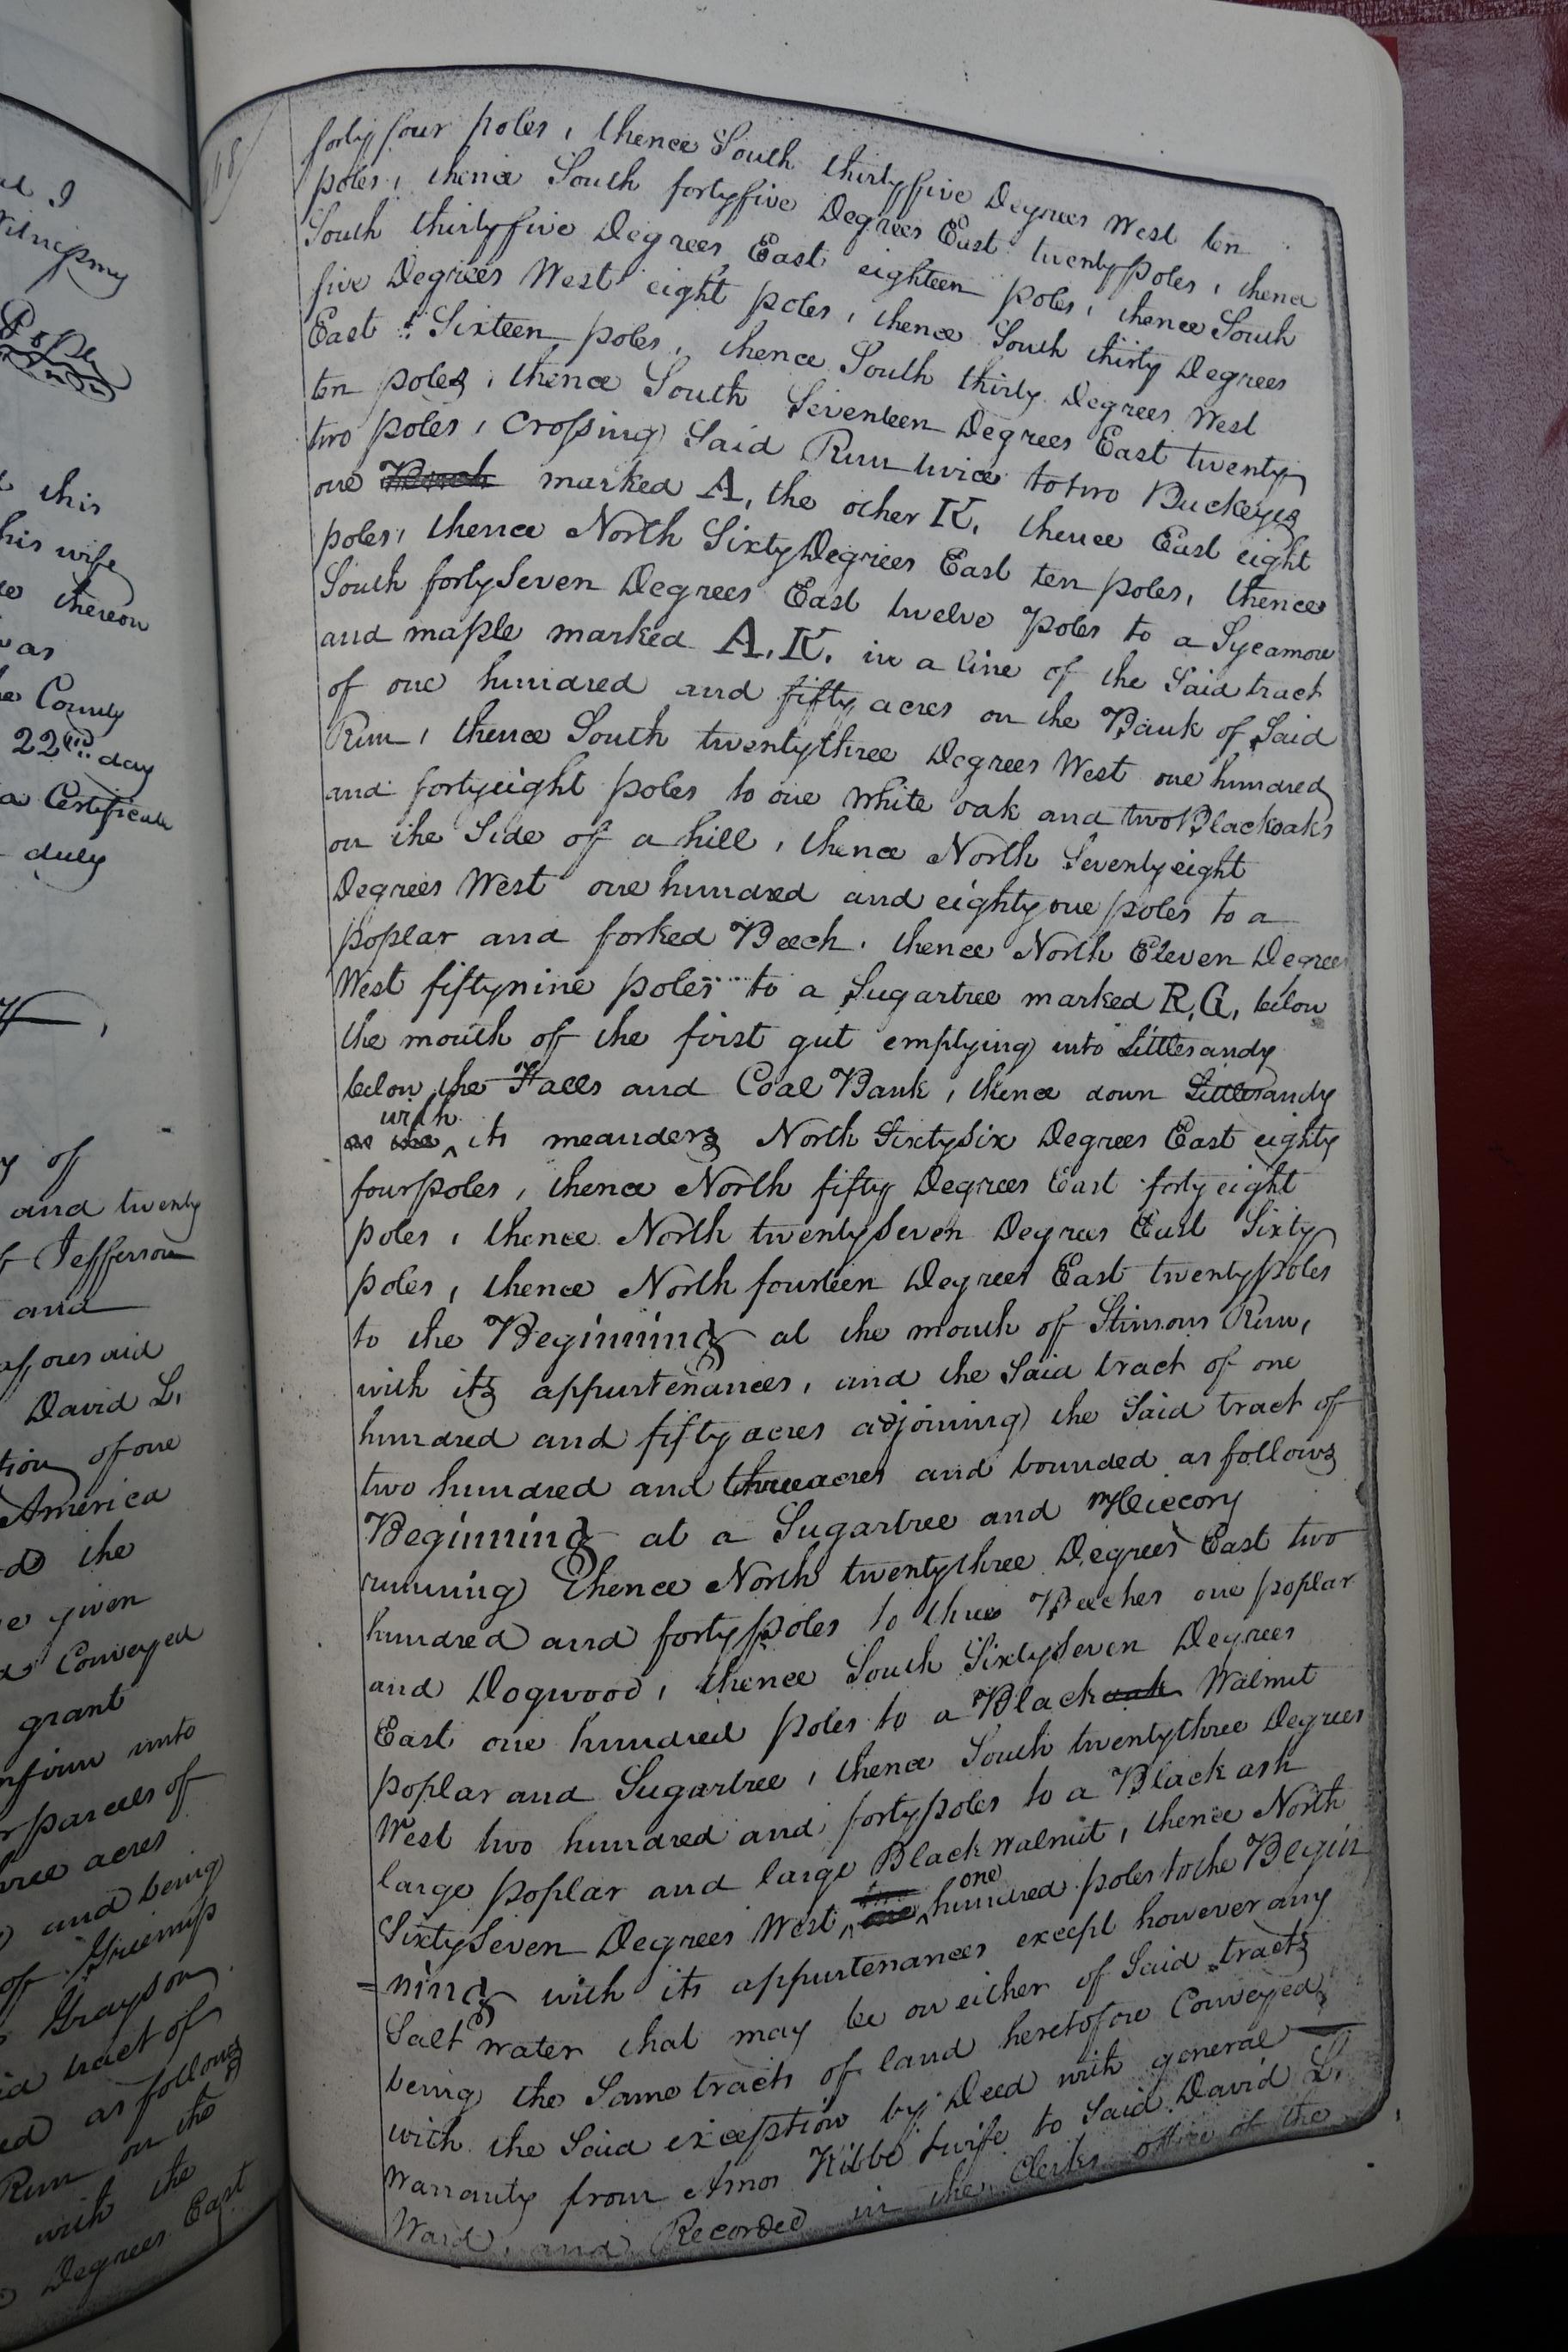 ed I
Witness my
Pope
this
his wife
thereon
as
County
22nd day
a Certificate
duly
of
and twenty
of Jefferson
and
aforesaid
David L.
tion of one
America
the
given
Conveyed
grant
confirm unto
or parcels of
three acres
and being
of Greenup
Grayson
tract of
as follows
Run on the
with the
Degrees East
forty four poles, thence South thirtyfive Degrees West ten
poles, thence South fortyfive Degrees East twenty poles, thence
South thirtyfive Degrees East eighteen poles, thence South
five Degrees West eight poles, thence South thirty Degrees
East Sixteen poles, thence South thirty Degrees West
ten poles, thence South Seventeen Degrees East twenty
two poles, Crossing Said Run twice to two Buckeyes
one marked A, the other K, thence East eight
poles, thence North Sixty Degrees East ten poles, thence
South fortySeven Degrees East twelve poles to a Sycamore
and maple marked A. K. in a line of the Said tract
of one hundred and fifty acres on the Bank of Said
Run, thence South twentythree Degrees West one hundred
and fortyeight poles to one white oak and two Blackoaks
on the Side of a hill, thence North Seventyeight
Degrees West one hundred and eighty one poles to a
poplar and forked Beech, thence North Eleven Degrees
West fiftynine poles to a Sugartree marked R, G, below
the mouth of the first gut emptying into Littlesandy
below the Falls and Coal Bank, thence down Littlesandy
with its meanders North Sixtysix Degrees East eighty
four poles, thence North fifty Degrees East forty eight
poles, thence North twentySeven Degrees East Sixty
poles, thence North fourteen Degrees East twenty poles
to the Beginning at the mouth of Stinsons Run,
with its appurtenances, and the Said tract of one
hundred and fifty acres adjoining the Said tract of
two hundred and three acres and bounded as follows
Beginning at a Sugartree and Hiccory
running thence North twentythree Degrees East two
hundred and forty poles to three Beeches one poplar
and Dogwood, thence South SixtySeven Degrees
East one hundred poles to a Black oak Walnut
poplar and Sugartree, thence South twentythree Degrees
West two hundred and forty poles to a Black ash
large poplar and large Black walnut, thence North
SixtySeven Degrees West one hundred poles to the Begin
=ning with its appurtenances except however any
Salt water that may be on either of Said tracts
being the Same tracts of land heretofore Conveyed
with the Said exception by Deed with general
Warranty from Amos Kibbe & wife to Said David L.
Ward, and Recorded in the Clerks office of the